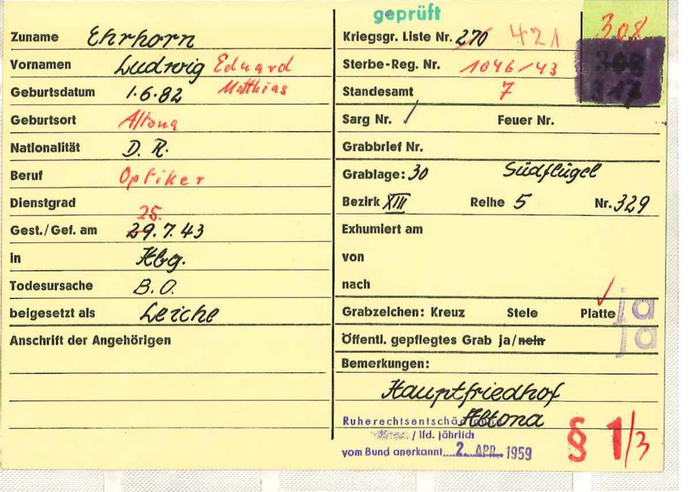 geprüft
Zuname Ehrhorn
Vornamen Ludwig Eduard
Matthias
Geburtsdatum 1.6.82
Geburtsort Altona
Nationalität D. R.
Beruf Optiker
Dienstgrad
25.
Gest./Gef. am 29.7.43
in Hbg.
Todesursache B.O.
beigesetzt als Leiche
Anschrift der Angehörigen
Kriegsgr. Liste Nr. 270 421 308
Sterbe-Reg. Nr. 1046/43 308
Standesamt 7 317
Sarg Nr. / Feuer Nr.
Grabbrief Nr.
Grablage: 30 Südflügel
Bezirk XIII Reihe 5 Nr. 329
Exhumiert am
von
nach
Grabzeichen: Kreuz Stele Platte ja
Öffentl. gepflegtes Grab ja/nein ja
Bemerkungen:
Hauptfriedhof
Altona
/ lfd. jährlich
vom Bund anerkannt 2. APR. 1959
§ 1/3